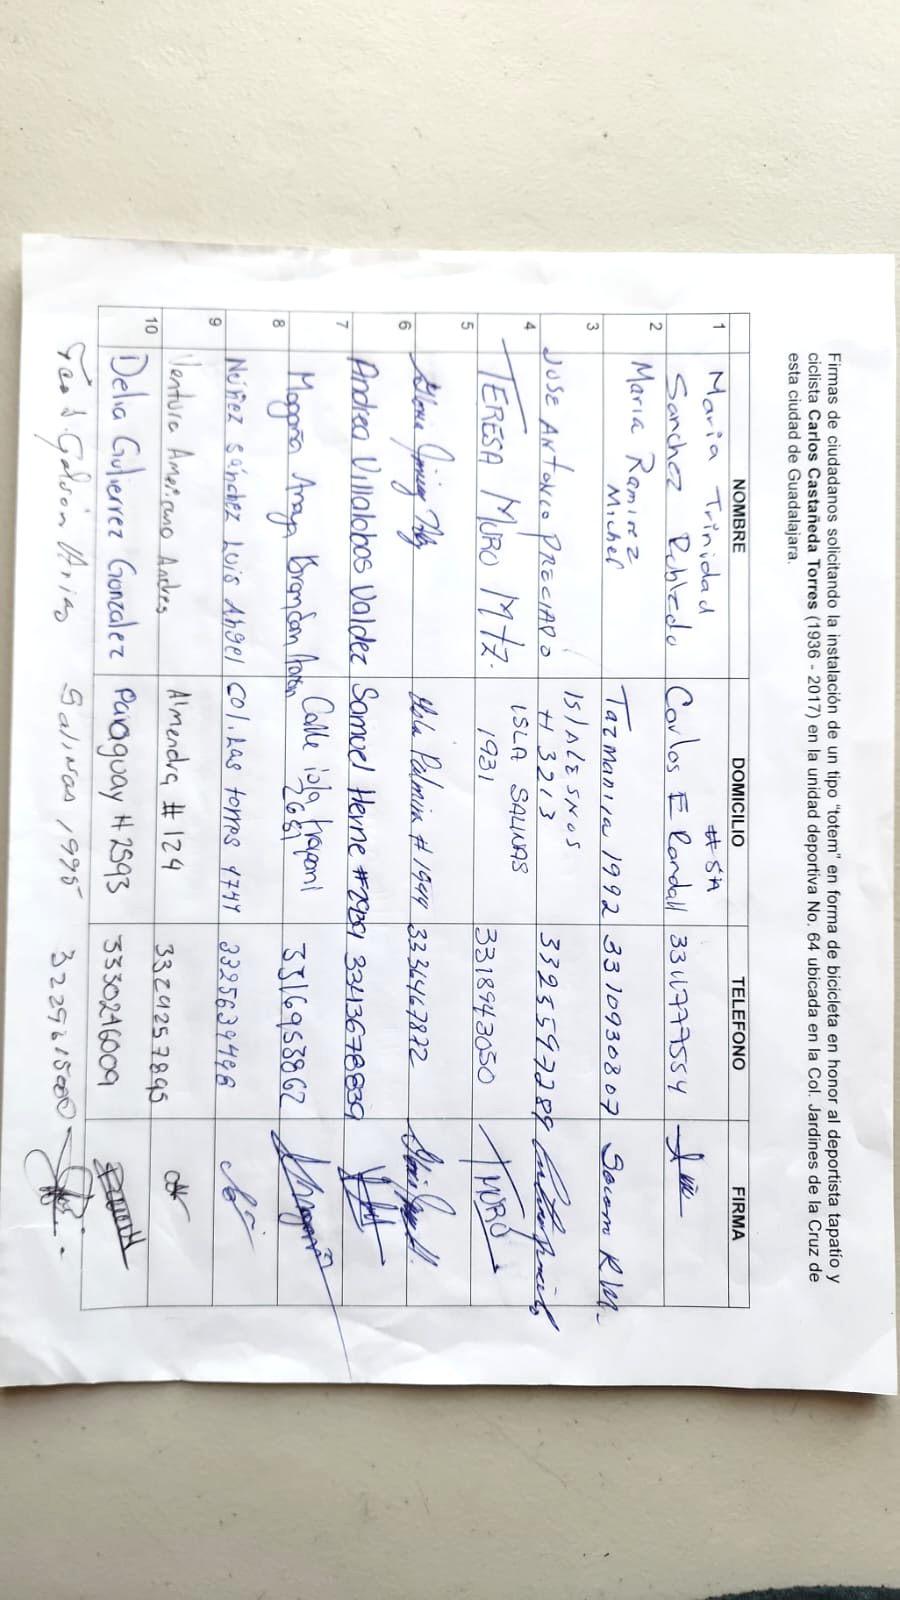 Firmas de ciudadanos solicitando la instalación de un tipo "totem" en forma de bicicleta en honor al deportista tapatío y
ciclista Carlos Castañeda Torres (1936 - 2017) en la unidad deportiva No. 64 ubicada en la Col. Jardines de la Cruz de
esta ciudad de Guadalajara.
NOMBRE DOMICILIO TELEFONO FIRMA
1 Maria Trinidad #
Sanchez Carlos E Randall 3317777554
2 Maria Ramirez
Michel Tazmania 1992 3310930807
3
JOSE ANTONIO PRECIADO
# 3213 3325597289
4 TERESA MURO MTZ. ISLA SALINAS
1931 3318943050 TMURO
5
# 1944 3331467872
6
Andrea Villalobos Valdez Samoel 3313678839
7
Magaña Anaya Brandon Calle isla
2681 3316953862
8
Núñez Sánchez Luis Angel Col. Las torres 4744
9
Ventura Americano Andres Almendra # 124 3324257895
10
Delia Gutierrez Gonzalez Paraguay # 2593 3330246009
Salinas 1995